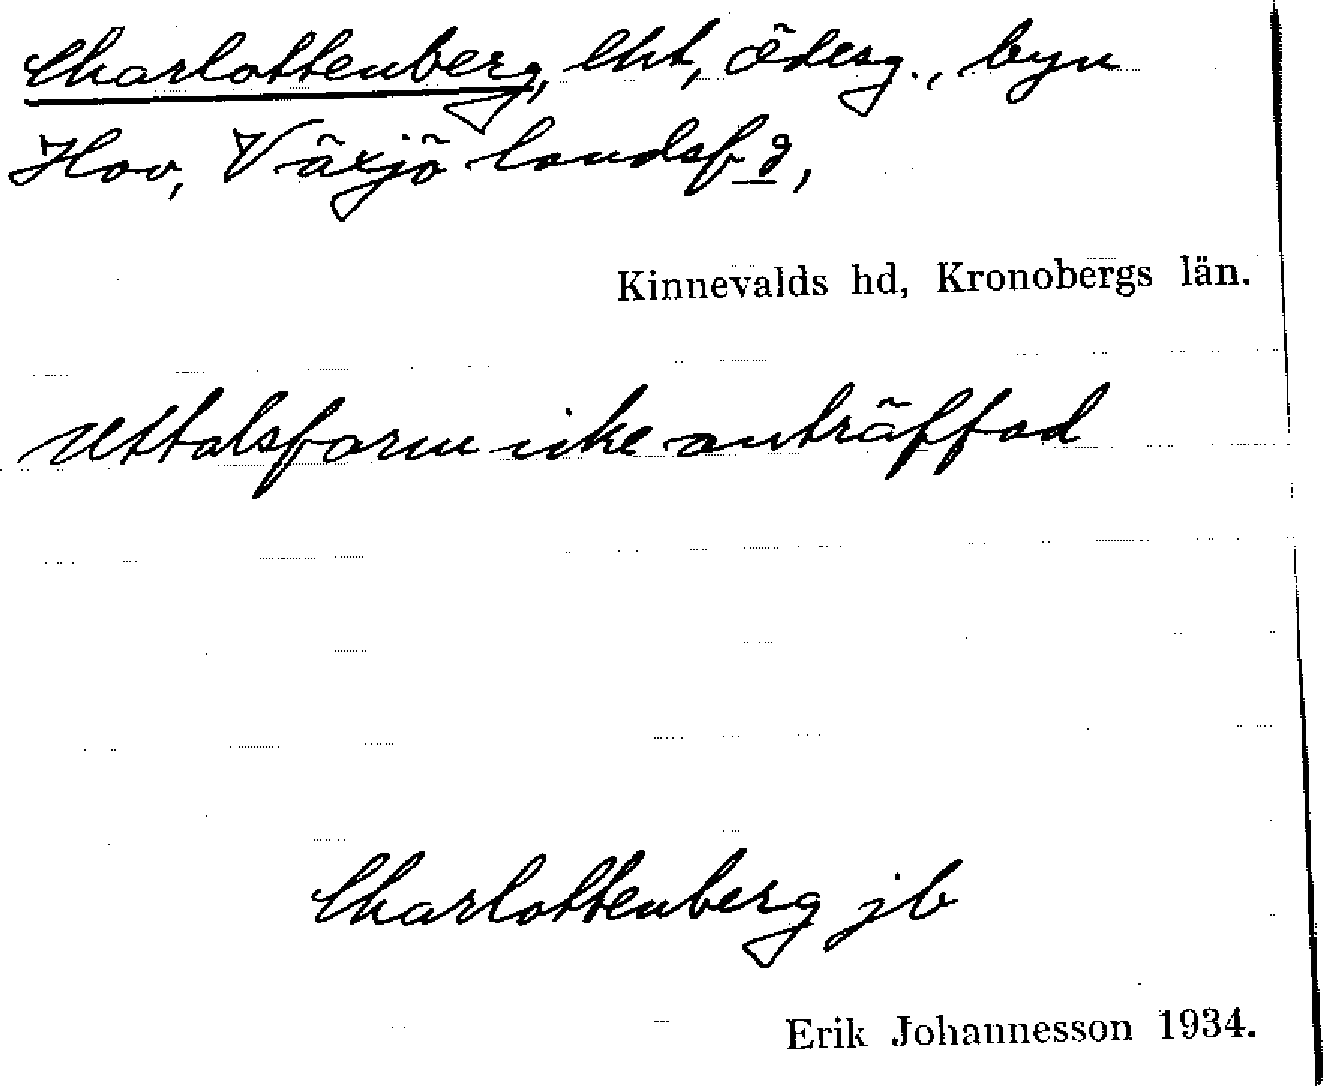 Charlottenberg, lht, ödesg., byn
Hov, Växjö landsf d,
Kinnevalds hd, Kronobergs län.
Uttalsform icke anträffad
Charlottenberg jb
Erik Johannesson 1934.